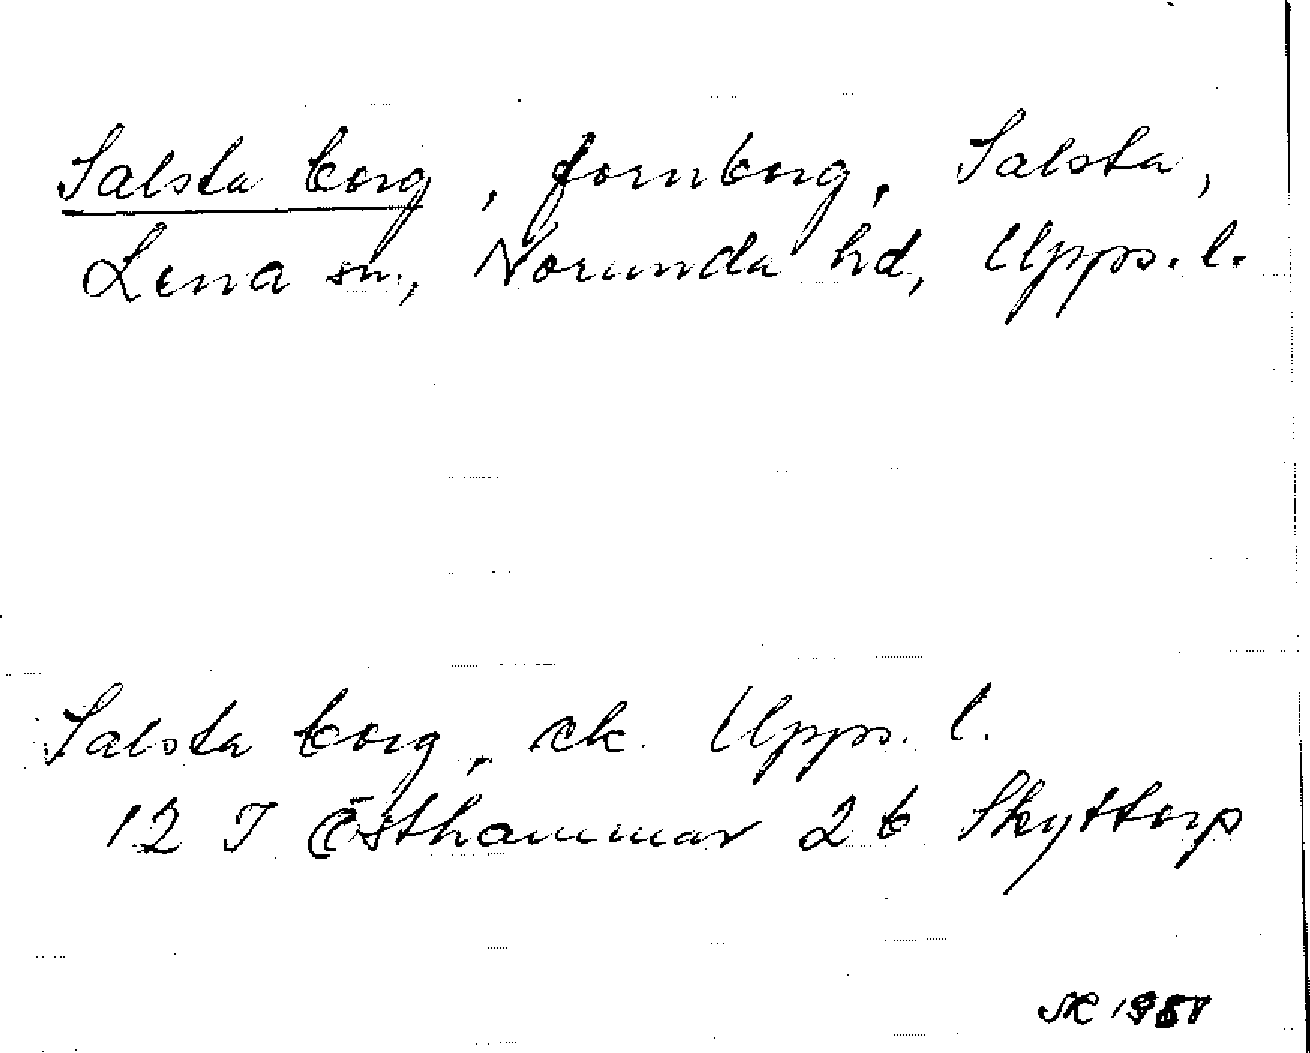 Salsta borg, fornborg, Salsta,
Lena sn., Norunda hd, Upps. l.
Salsta borg, ek. Upps. l.
12 I Östhammar 2 b Skyttorp